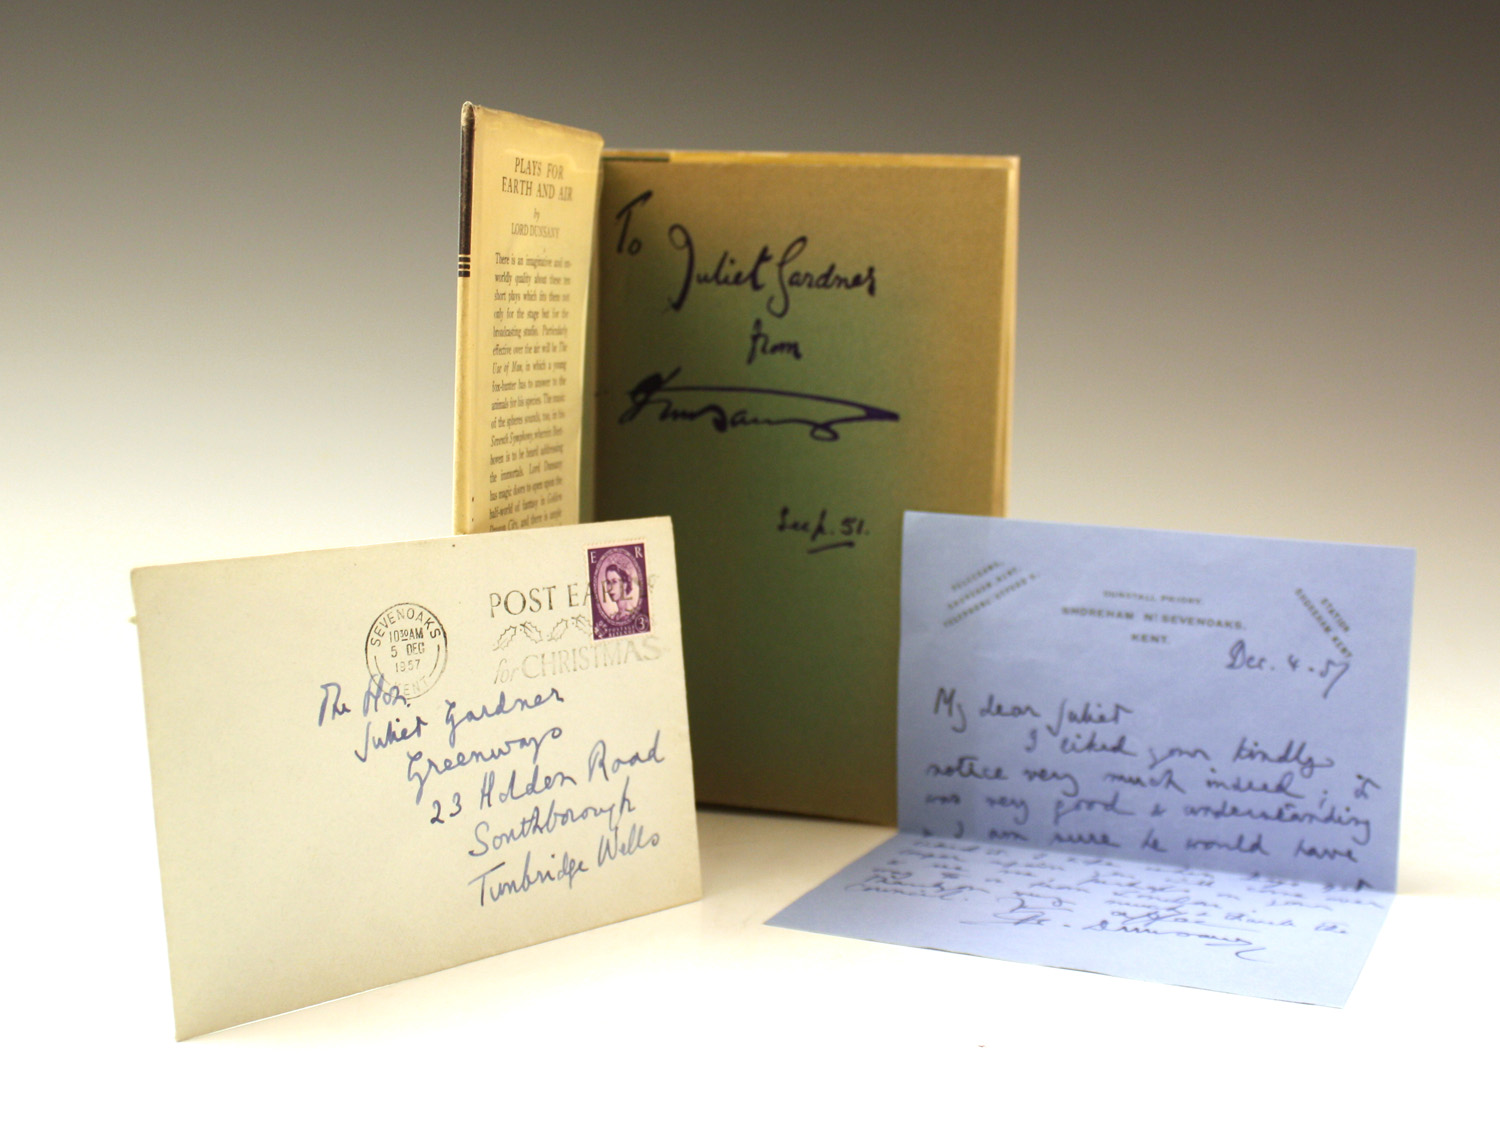 PLAYS FOR
EARTH AND AIR
by
LORD DUNSANY
There is an imaginative and
worldly quality about these ten
short plays which fits them not
only for the stage but for the
broadcasting studio. Particularly
effective over the air will be The
Use of Man, in which a young
fox-hunter has to answer to the
animals for his species. The music
of the spheres sounds, too, in his
Seventh Symphony, wherein Beet-
hoven is to be heard addressing
the immortals. Lord Dunsany
has magic doors to open upon the
half-world of fantasy in Golden
Dragon City, and there is
To
Juliet Gardner
from
Dunsany
Sep. 51.
SEVENOAKS
10 30 AM
5 DEC
1957
KENT
POST EARLY
for CHRISTMAS
E R
3D
The Hon.
Juliet Gardner
Greenways
23 Holden Road
Southborough
Tunbridge Wells
TELEGRAMS,
SHOREHAM KENT.
DUNSTALL PRIORY,
SHOREHAM Nr SEVENOAKS,
KENT.
STATION
SHOREHAM KENT.
Dec. 4. 57
My dear Juliet
I liked your kindly
notice very much indeed; it
was very good & understanding
& I am sure he would have
thank the
Dunsany